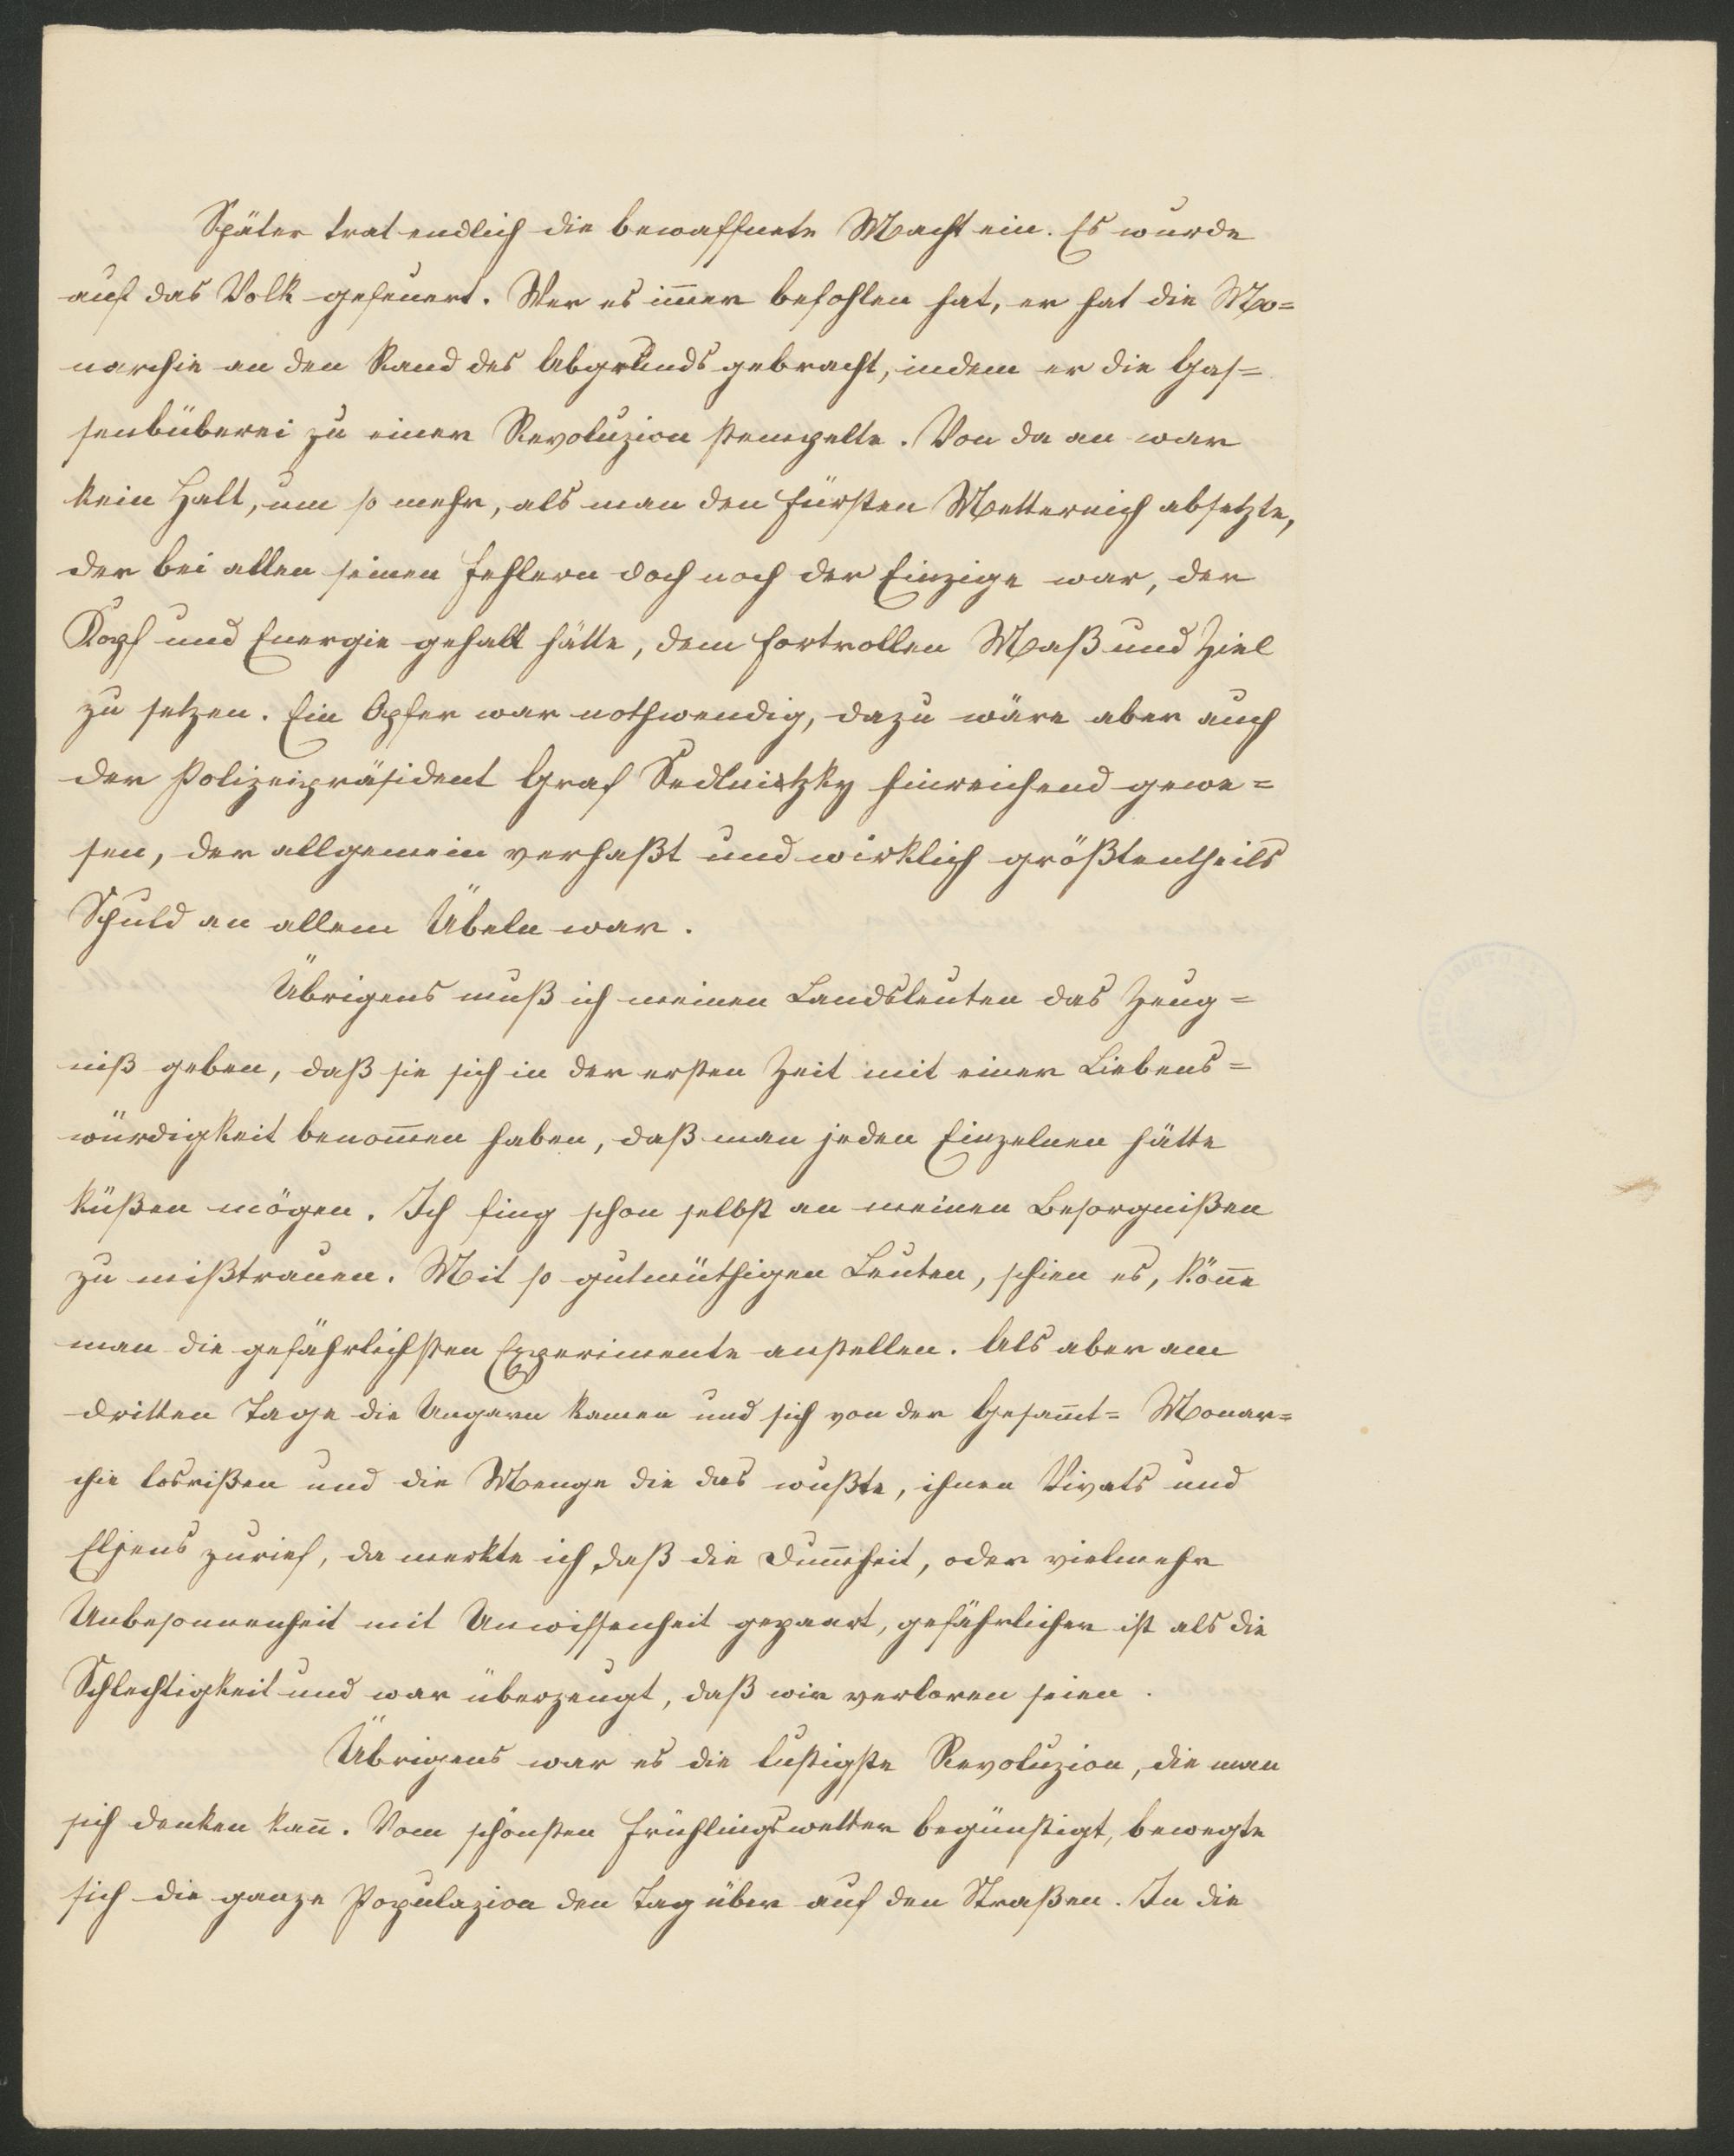 Später trat endlich die bewaffnete Macht ein. Es wurde
auf das Volk gefeuert. Wer es im̄er befohlen hat, er hat die Mo=
narchie an den Rand des Abgrunds gebracht, indem er die Gas=
senbüberei zu einer Revoluzion stempelte. Von da an war
kein Halt, um so mehr, als man den Fürsten Metternich absetzte,
der bei allen seinen Fehlern doch noch der Einzige war, der
Kopf und Energie gehabt hätte, dem Fortrollen Maß und Ziel
zu setzen. Ein Opfer war nothwendig, dazu wäre aber auch
der Polizeipräsident Graf Sedlnitzky hinreichend gewe=
sen, der allgemein verhaßt und wirklich größtentheils
Schuld an allem Übeln war.
Übrigens muß ich meinen Landsleuten das Zeug=
niß geben, daß sie sich in der ersten Zeit mit einer Liebens=
würdigkeit benom̄en haben, daß man jeden Einzelnen hätte
küßen mögen. Ich fing schon selbst an meinen Besorgnißen
zu mißtrauen. Mit so gutmüthigen Leuten, schien es, kön̄e
man die gefährlichsten Experimente anstellen. Als aber am
dritten Tage die Ungarn kamen und sich von der Gesam̄t= Monar=
chie losrißen und die Menge die das wußte, ihnen Vivats und
Eljens zurief, da merkte ich, daß die Dum̄heit, oder vielmehr
Unbesonnenheit mit Unwissenheit gepaart, gefährlicher ist als die
Schlechtigkeit und war überzeugt, daß wir verloren seien.
Übrigens war es die lustigste Revoluzion, die man
sich denken kan̄. Vom schönsten Frühlingswetter begünstigt, bewegte
sich die ganze Populazion den Tag über auf den Straßen. In die